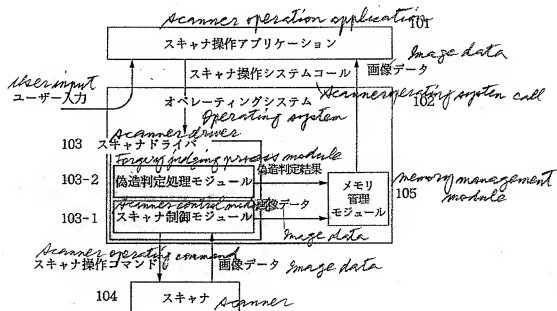 Scanner operation application
101
スキャナ操作アプリケーション
Image data
スキャナ操作システムコール 画像データ
User input
ユーザー入力
Scanner operating system call
オペレーティングシステム 102
Operating system
Scanner driver
103 スキャナドライバ
Forgery judging process module
偽造判定結果
103-2 偽造判定処理モジュール
メモリ管理モジュール
105
memory management module
Scanner control module
画像データ
103-1 スキャナ制御モジュール
Image data
Scanner operating command
スキャナ操作コマンド 画像データ Image data
104 スキャナ scanner